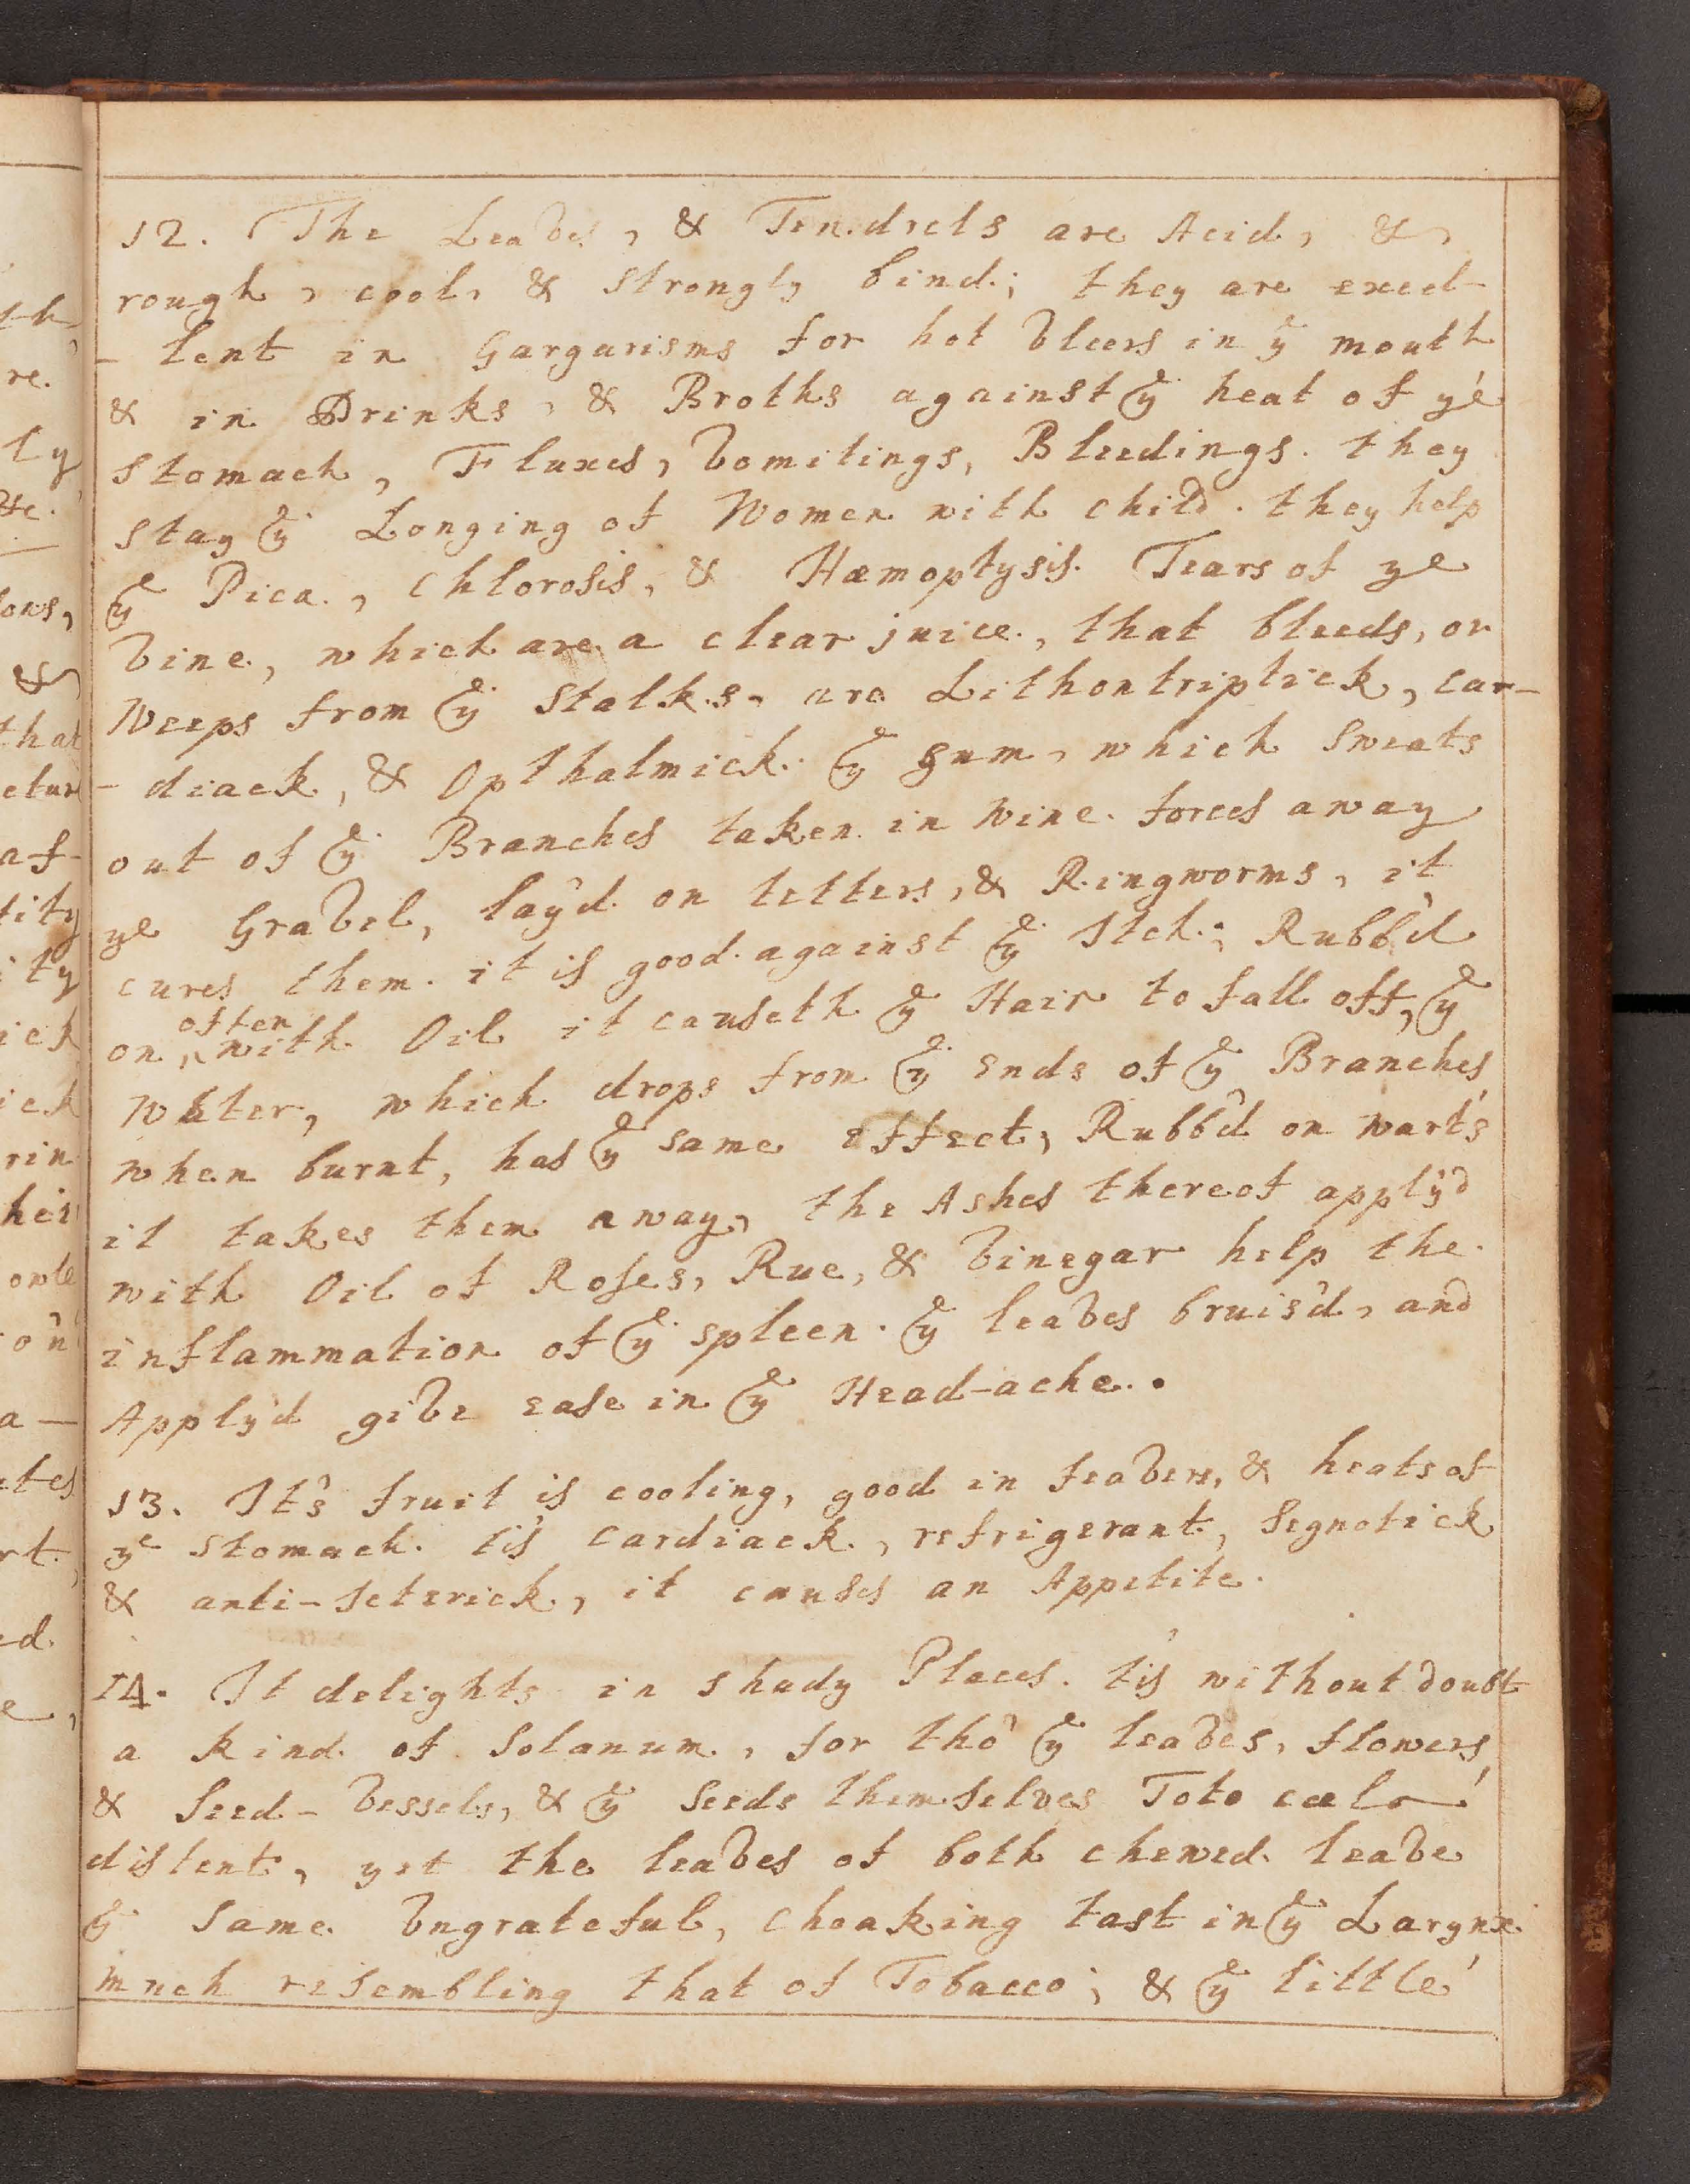 12. The Leaves, & Tendrels are Acid, &,
rough, cool, & strongly bind; they are excel-
-lent in Gargarisms for hot Vlcers in yͤ mouth
& in Drinks, & Broths against yͤ heat of yͤ
Stomach, Fluxes, Vomitings, Bleedings. they
stay yͤ Longing of Women with Child. they help
yͤ Pica, Chlorosis, & Hæmoptysis. Tears of ye
Vine, which are a clear juice, that bleeds, or
Weeps from yͤ Stalks, are Lithontriptick, Car-
-diack, & Opthalmick. yͤ Gum, which Sweats
out of yͤ Branches taken in Wine forces away
ye Gravel, lay'd on tetters, & Ringworms, it
cures them. it is good against yͤ Itch; Rubb'd
on, often with Oil it causeth yͤ Hair to fall off, yͤ
Water, which drops from yͤ Ends of yͤ Branches
when burnt, has yͤ same Effect, Rubb'd on warts
it takes them away, the Ashes thereof apply'd
with Oil of Roses, Rue, & Vinegar help the
inflammation of yͤ spleen. yͤ leaves bruis'd, and
Apply'd give ease in yͤ Head-ache.
13. It's fruit is cooling, good in feavers, & heats of
yͤ Stomach. tis Cardiack, refrigerant, Segnotick
& anti-Ieterick, it causes an Appetite.
14. It delights in shady Places. tis without doubt
a kind of Solanum, for tho' yͤ leaves, flowers,
& Seed-Vessels, & yͤ Seeds themselves Toto cœlo
distent, yet the leaves of both chewed leave
yͤ Same Vngrateful, choaking tast in yͤ Larynx
much resembling that of Tobacco; & yͤ little